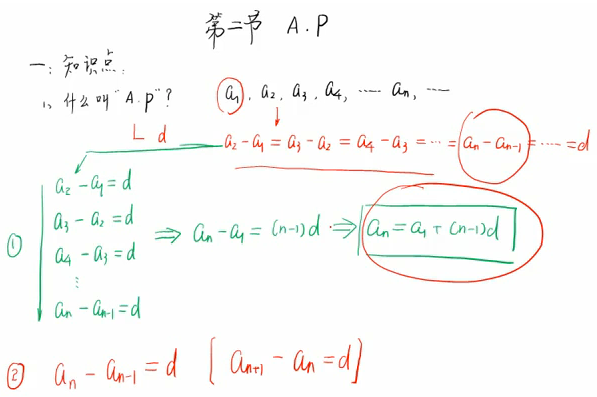 第二节 A.P
一: 知识点:
1、什么叫"A.p"? a₁, a₂, a₃, a₄, ⋯⋯ aₙ, ⋯
d a₂-a₁=a₃-a₂=a₄-a₃=⋯=aₙ-aₙ₋₁=⋯⋯=d
a₂-a₁=d
a₃-a₂=d
① ⇒ aₙ-a₁=(n-1)d ⇒ aₙ=a₁+(n-1)d
a₄-a₃=d
⋮
aₙ-aₙ₋₁=d
② aₙ-aₙ₋₁=d [aₙ₊₁-aₙ=d]